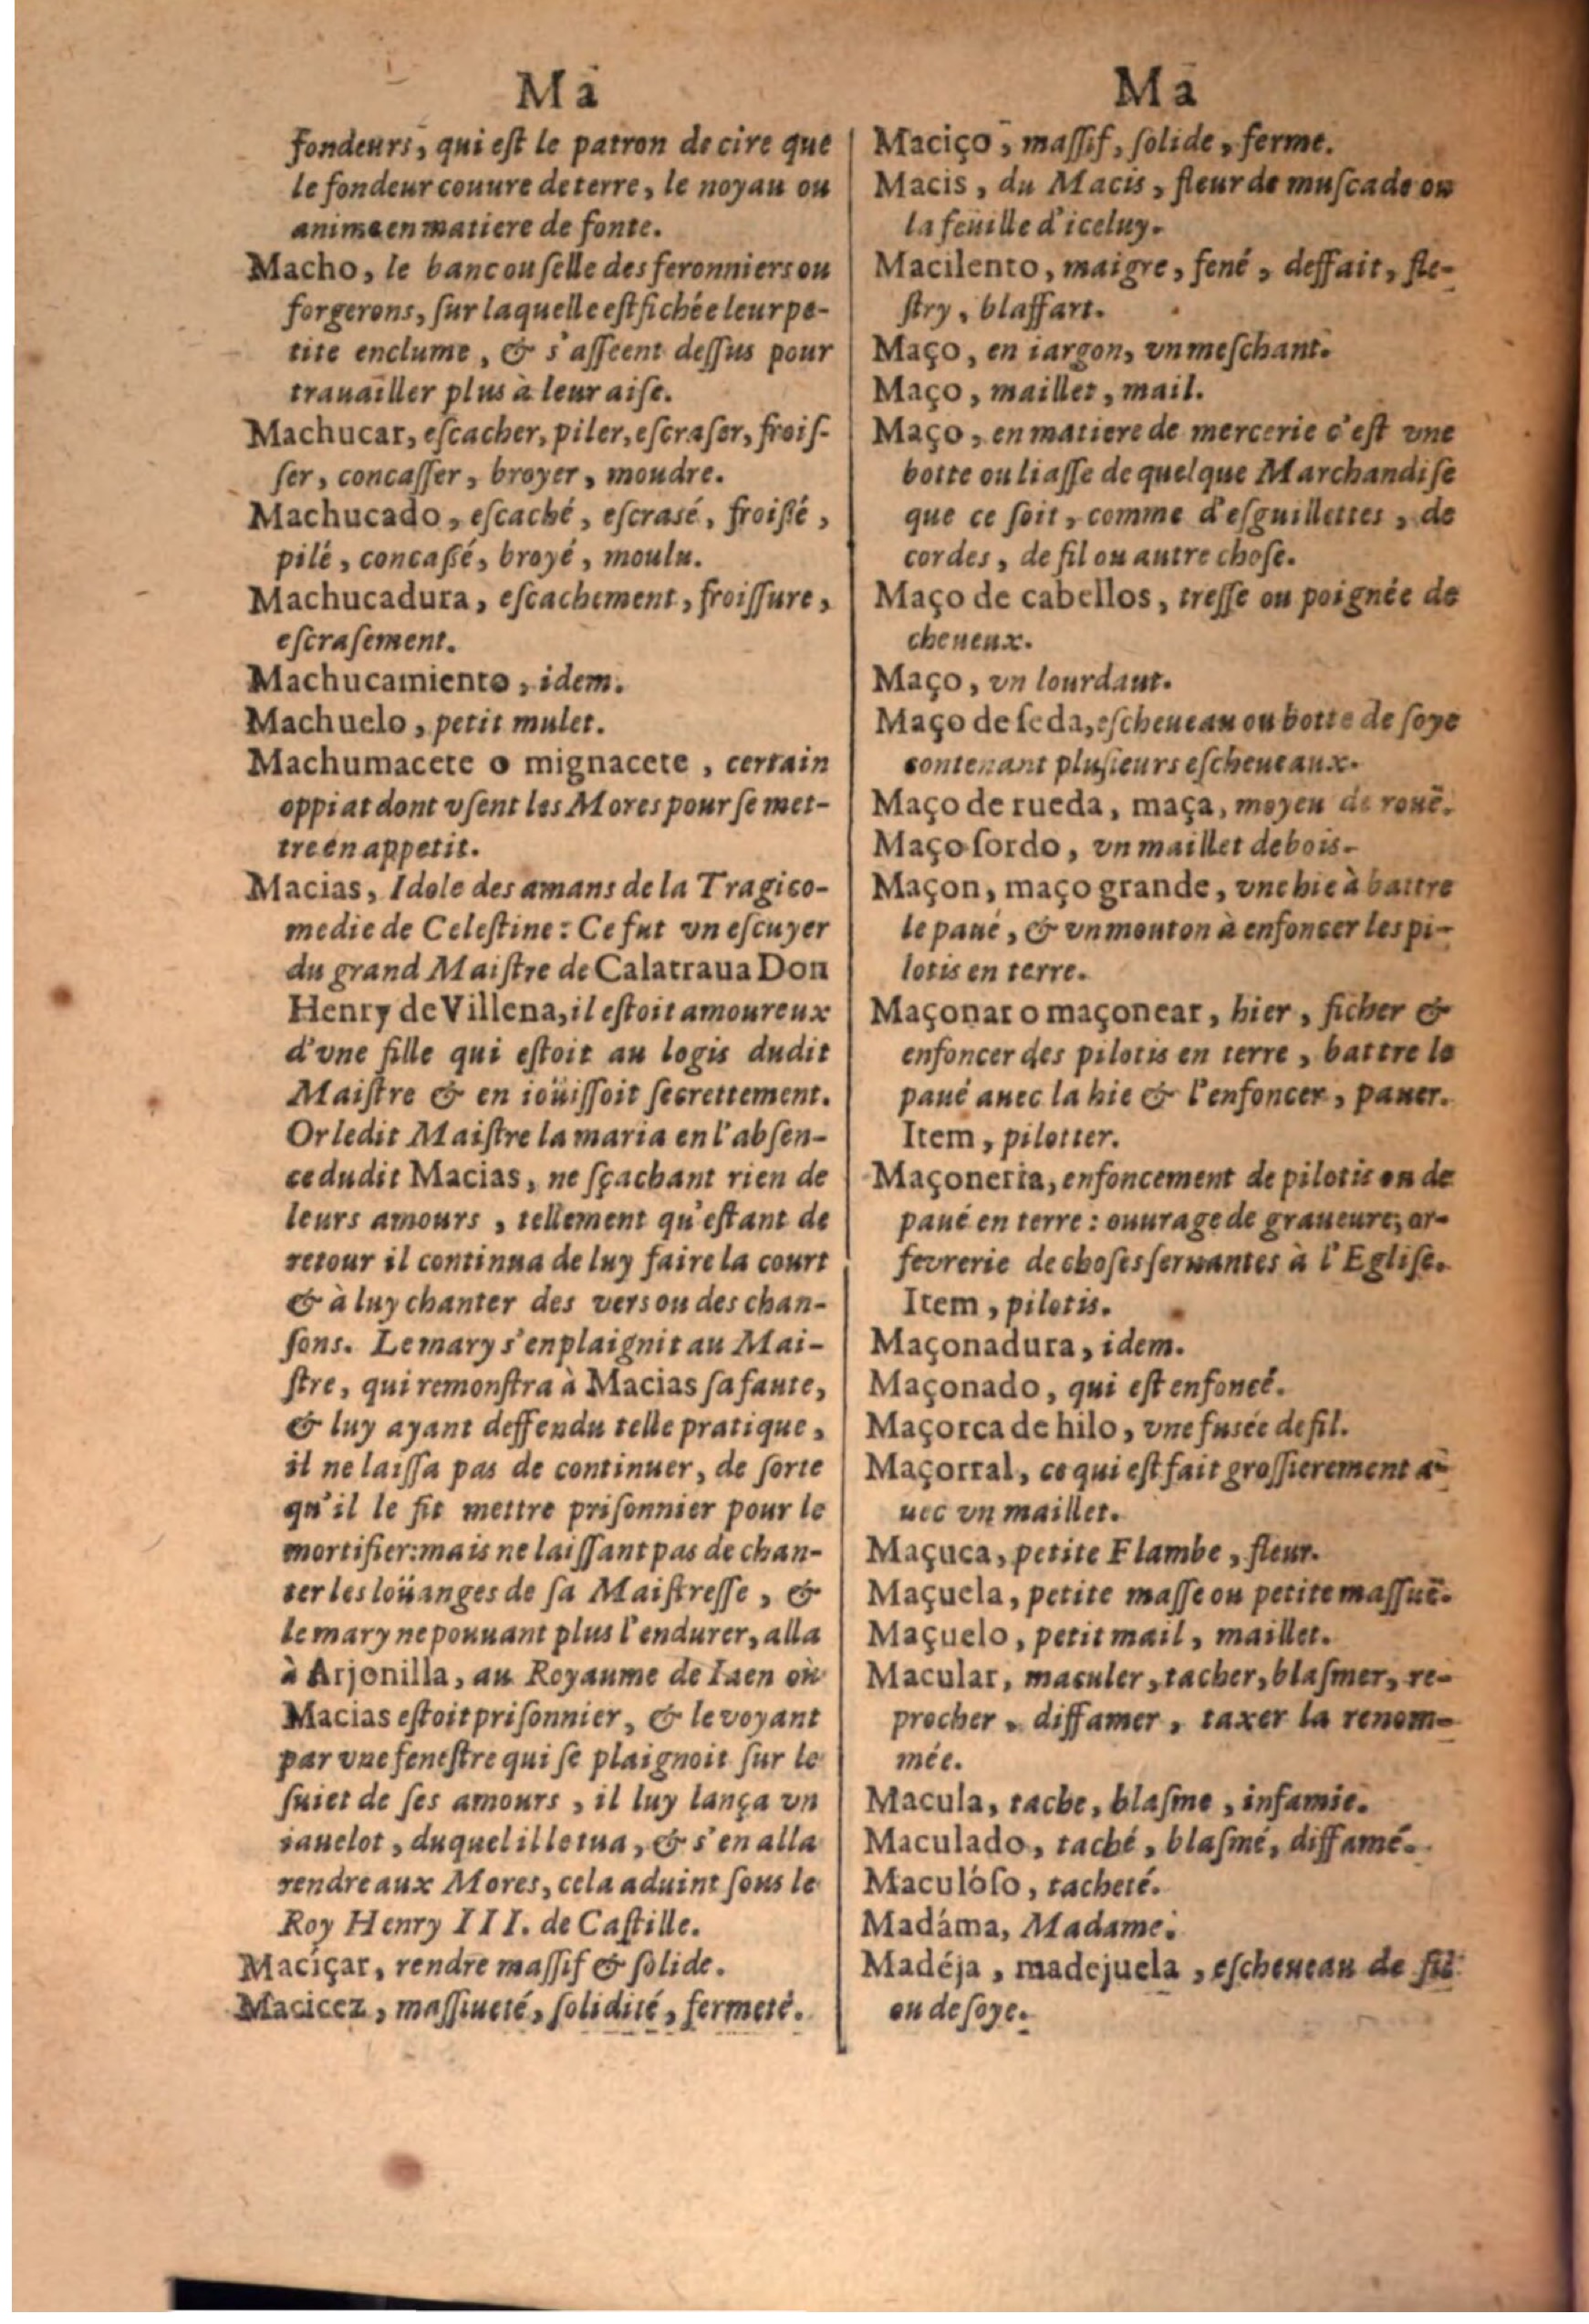 Ma
fondeurs, qui est le patron de cire que
le fondeur couure de terre, le noyau ou
anima en matiere de fonte.
Macho, le banc ou selle des feronniers ou
forgerons, sur laquelle est fichée leur pe-
tite enclume, & s'asseent dessus pour
trauailler plus à leur aise.
Machucar, escacher, piler, escraser, frois-
ser, concasser, broyer, moudre.
Machucado, escaché, escrasé, froissé,
pilé, concassé, broyé, moulu.
Machucadura, escachement, froissure,
escrasement.
Machucamiento, idem.
Machuelo, petit mulet.
Machumacete o mignacete, certain
oppiat dont vsent les Mores pour se met-
tre en appetit.
Macias, Idole des amans de la Tragico-
medie de Celestine: Ce fut vn escuyer
du grand Maistre de Calatraua Don
Henry de Villena, il estoit amoureux
d'vne fille qui estoit au logis dudit
Maistre & en ioüissoit secrettement.
Or ledit Maistre la maria en l'absen-
ce dudit Macias, ne sçachant rien de
leurs amours, tellement qu'estant de
retour il continua de luy faire la court
& à luy chanter des vers ou des chan-
sons. Le mary s'en plaignit au Mai-
stre, qui remonstra à Macias sa faute,
& luy ayant deffendu telle pratique,
il ne laissa pas de continuer, de sorte
qu'il le fit mettre prisonnier pour le
mortifier: mais ne laissant pas de chan-
ter les loüanges de sa Maistresse, &
le mary ne pouuant plus l'endurer, alla
à Arjonilla, au Royaume de Iaen où
Macias estoit prisonnier, & le voyant
par vne fenestre qui se plaignoit sur le
suiet de ses amours, il luy lança vn
iauelot, duquel il le tua, & s'en alla
rendre aux Mores, cela aduint sous le
Roy Henry III. de Castille.
Maciçar, rendre massif & solide.
Macicez, massiueté, solidité, fermeté.
Ma
Maciço, massif, solide, ferme.
Macis, du Macis, fleur de muscade ou
la feuille d'iceluy.
Macilento, maigre, fené, deffait, fle-
stry, blaffart.
Maço, en iargon, vn meschant.
Maço, maillet, mail.
Maço, en matiere de mercerie c'est vne
botte ou liasse de quelque Marchandise
que ce soit, comme d'esguillettes, de
cordes, de fil ou autre chose.
Maço de cabellos, tresse ou poignée de
cheueux.
Maço, vn lourdaut.
Maço de seda, escheueau ou botte de soye
contenant plusieurs escheueaux.
Maço de rueda, maça, moyeu de rouë.
Maço sordo, vn maillet de bois.
Maçon, maço grande, vne hie à battre
le paué, & vn mouton à enfoncer les pi-
lotis en terre.
Maçonar o maçonear, hier, ficher &
enfoncer des pilotis en terre, battre le
paué auec la hie & l'enfoncer, pauer.
Item, pilotter.
Maçoneria, enfoncement de pilotis ou de
paué en terre: ouurage de graueure, or-
fevrerie de choses seruantes à l'Eglise.
Item, pilotis.
Maçonadura, idem.
Maçonado, qui est enfoncé.
Maçorca de hilo, vne fusée de fil.
Maçorral, ce qui est fait grossierement a-
uec vn maillet.
Maçuca, petite Flambe, fleur.
Maçuela, petite masse ou petite massuë.
Maçuelo, petit mail, maillet.
Macular, maculer, tacher, blasmer, re-
procher, diffamer, taxer la renom-
mée.
Macula, tache, blasme, infamie.
Maculado, taché, blasmé, diffamé.
Maculóso, tacheté.
Madáma, Madame.
Madéja, madejuela, escheueau de fil
ou de soye.